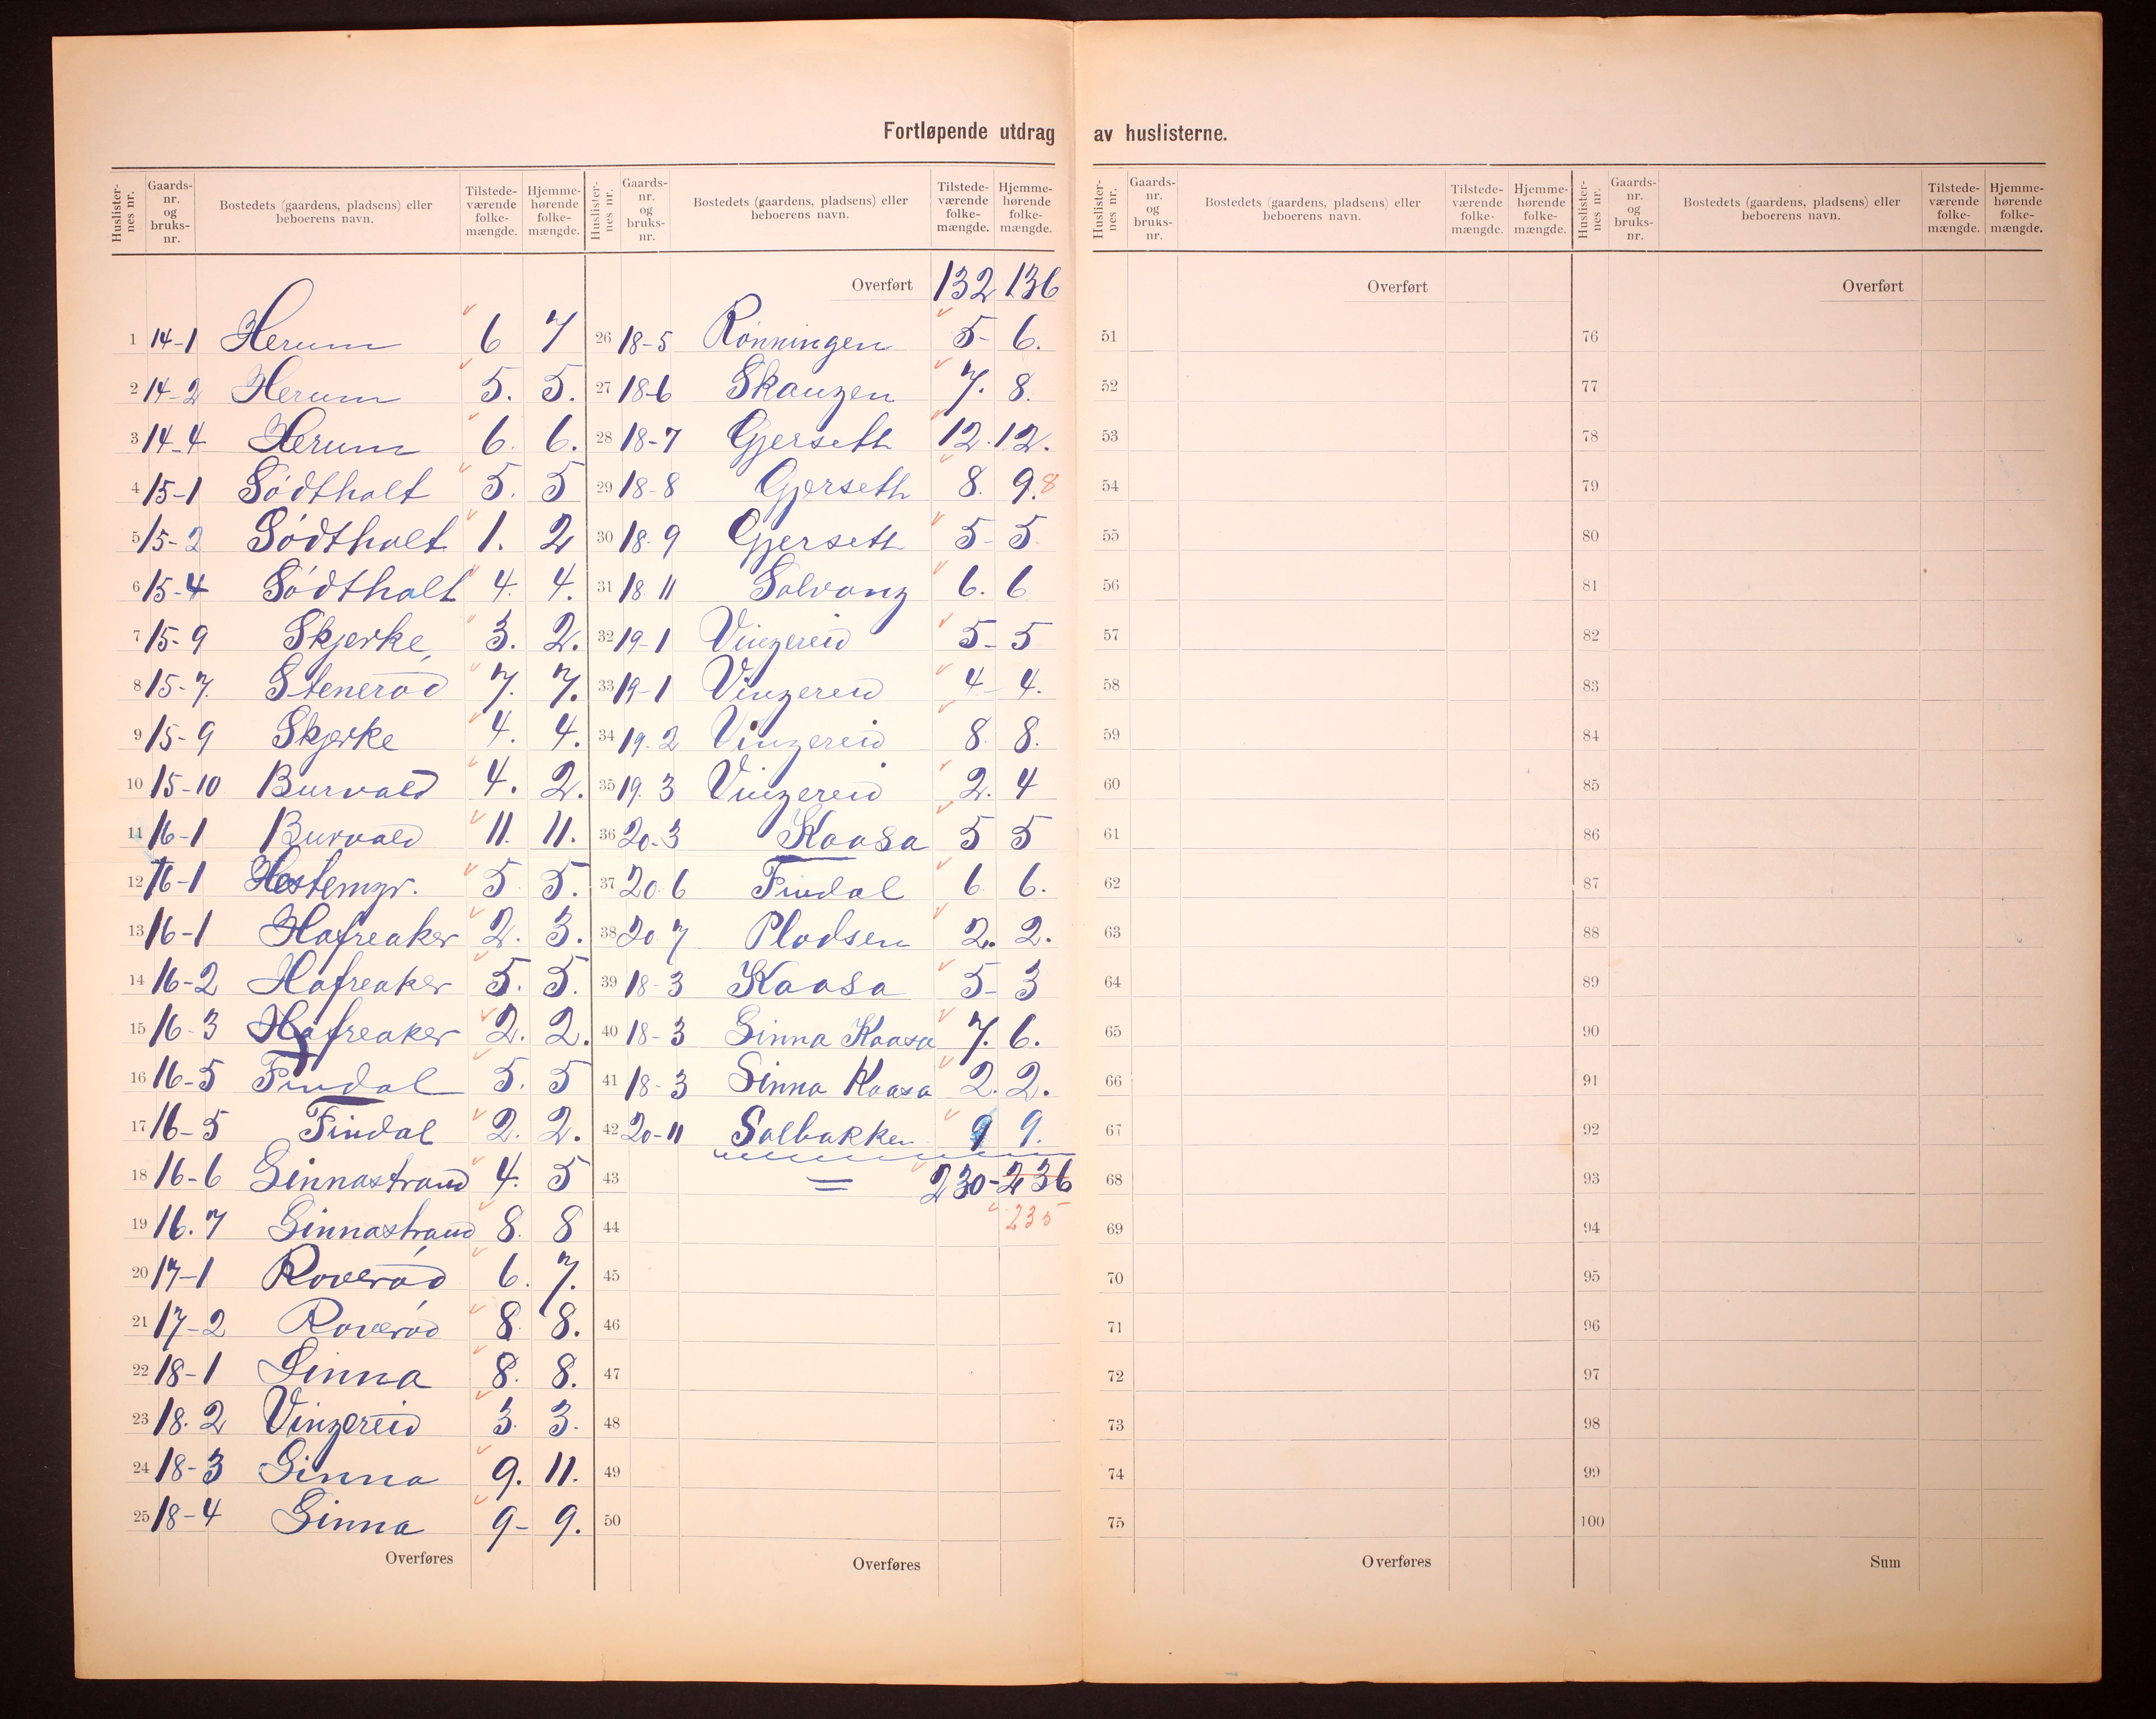 Fortløpende utdrag av huslisterne.
Huslister-nes nr. Gaards-nr. og bruks-nr. Bostedets (gaardens, pladsens) eller beboerens navn. Tilstede-værende folke-mængde. Hjemme-hørende folke-mængde.
1 14-1 Herum 6 7
2 14-2 Herum 5. 5.
3 14-4 Herum 6. 6.
4 15-1 Södtholt 5. 5
5 15-2 Södtholt 1. 2
6 15-4 Södtholt 4. 4.
7 15-9 Skjerke 3. 2.
8 15-7. Steneröd 7. 7.
9 15-9 Skjerke 4. 4.
10 15-10 Burvald 4. 2.
11 16-1 Burvald 11. 11.
12 16-1 Hestemyr. 5 5.
13 16-1 Hafreaker 2. 3.
14 16-2 Hafreaker 5. 5.
15 16-3 Hafreaker 2. 2.
16 16-5 Findal 5. 5
17 16-5 Findal 2. 2.
18 16-6 Ginnastrand 4. 5
19 16.7 Ginnastrand 8. 8
20 17-1 Roveröd 6. 7.
21 17-2 Roveröd 8 8.
22 18-1 Ginna 8. 8.
23 18.2 Vingereid 3. 3.
24 18-3 Ginna 9. 11.
25 18-4 Ginna 9- 9.
Overføres
Huslister-nes nr. Gaards-nr. og bruks-nr. Bostedets (gaardens, pladsens) eller beboerens navn. Tilstede-værende folke-mængde. Hjemme-hørende folke-mængde.
Overført 132 136
26 18-5 Rönningen 5- 6.
27 18-6 Skaugen 7. 8.
28 18-7 Gjerseth 12. 12.
29 18-8 Gjerseth 8. 9. 8
30 18-9 Gjerseth 5- 5
31 18 11 Solvang 6. 6
32 19-1 Vingereid 5- 5
33 19-1 Vingereid 4- 4.
34 19.2 Vingereid 8. 8.
35 19.3 Vingereid 2. 4
36 20-3 Kaasa 5 5
37 20.6 Findal 6 6.
38 20 7 Pladsen 2. 2.
39 18-3 Kaasa 5- 3
40 18-3 Ginna Kaasa 7. 6.
41 18-3 Ginna Kaasa 2. 2.
42 20-11 Solbakken 9 9.
43 = 230-236
44 235
45
46
47
48
49
50
Overføres
Huslister-nes nr. Gaards-nr. og bruks-nr. Bostedets (gaardens, pladsens) eller beboerens navn. Tilstede-værende folke-mængde. Hjemme-hørende folke-mængde.
Overført
51
52
53
54
55
56
57
58
59
60
61
62
63
64
65
66
67
68
69
70
71
72
73
74
75
Overføres
Huslister-nes nr. Gaards-nr. og bruks-nr. Bostedets (gaardens, pladsens) eller beboerens navn. Tilstede-værende folke-mængde. Hjemme-hørende folke-mængde.
Overført
76
77
78
79
80
81
82
83
84
85
86
87
88
89
90
91
92
93
94
95
96
97
98
99
100
Sum